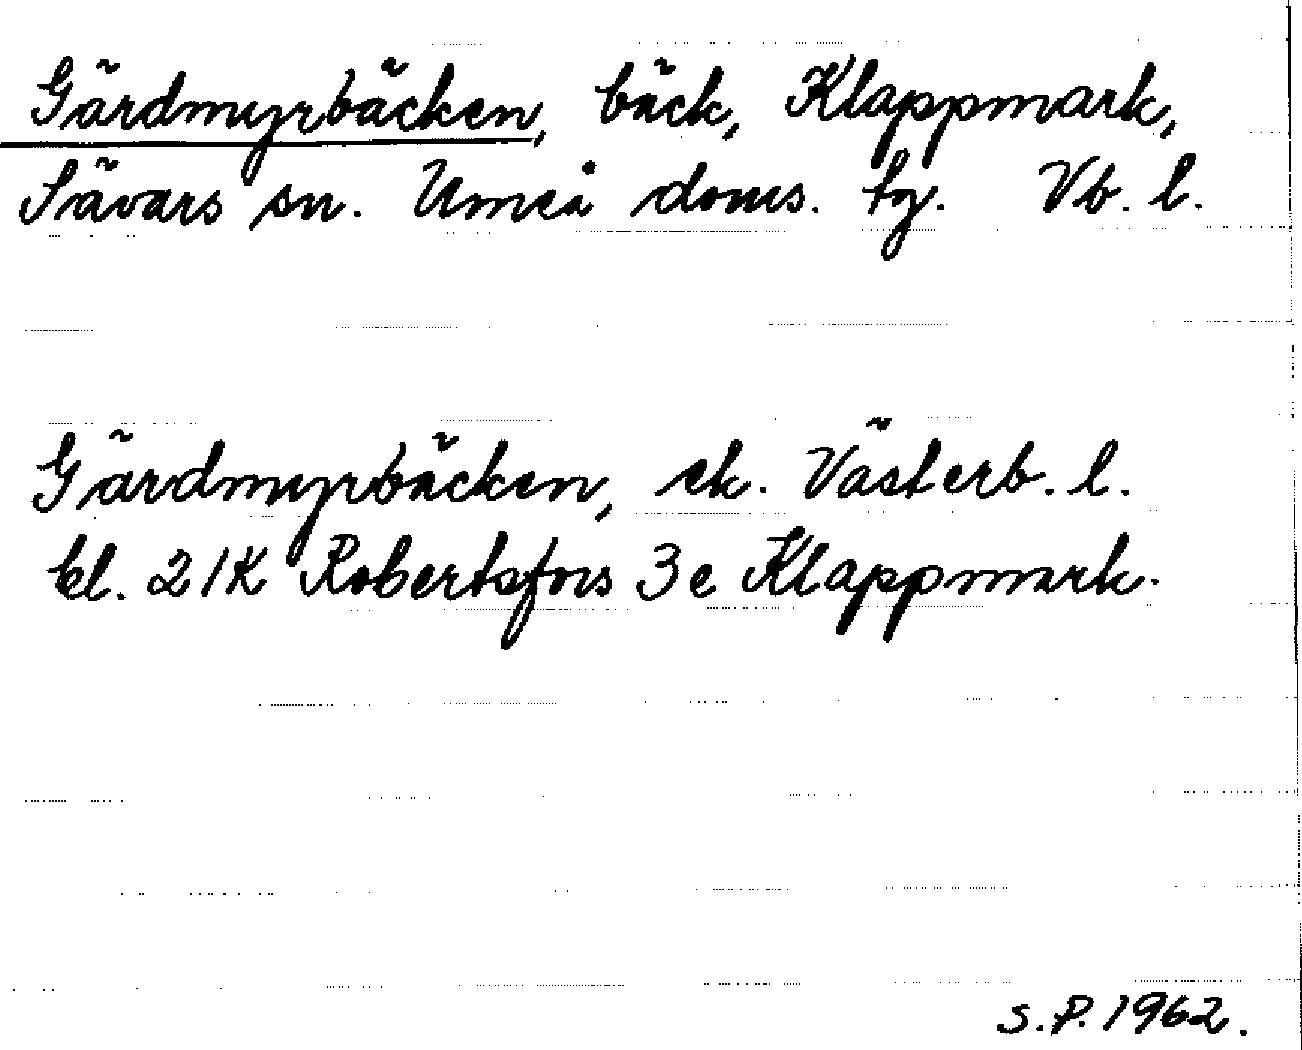 Gärdmyrbäcken, bäck, Klappmark,
Sävars sn. Umeå doms. tg. Vb. l.
Gärdmyrbäcken, ek. Västerb. l.
bl. 21K Robertsfors 3e Klappmark.
S.P. 1962.